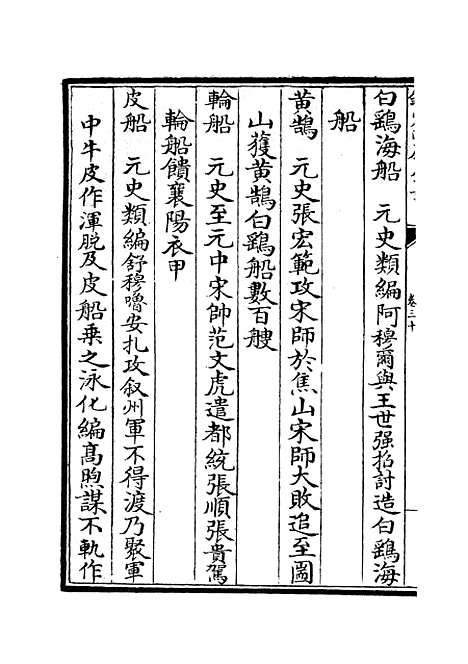 白鷂海船　元史類編阿穆爾與王世强招討造白鷂海
船
黄鵠　元史張宏範攻宋師於焦山宋師大敗追至圌
山獲黄鵠白鷂船數百艘
輪船　元史至元中宋帥范文虎遣都統張順張貴駕
輪船饋襄陽衣甲
皮船　元史類編舒穆嚕安扎攻叙州軍不得渡乃聚軍
中牛皮作渾脱及皮船乗之泳化編髙煦謀不軌作
卷三十